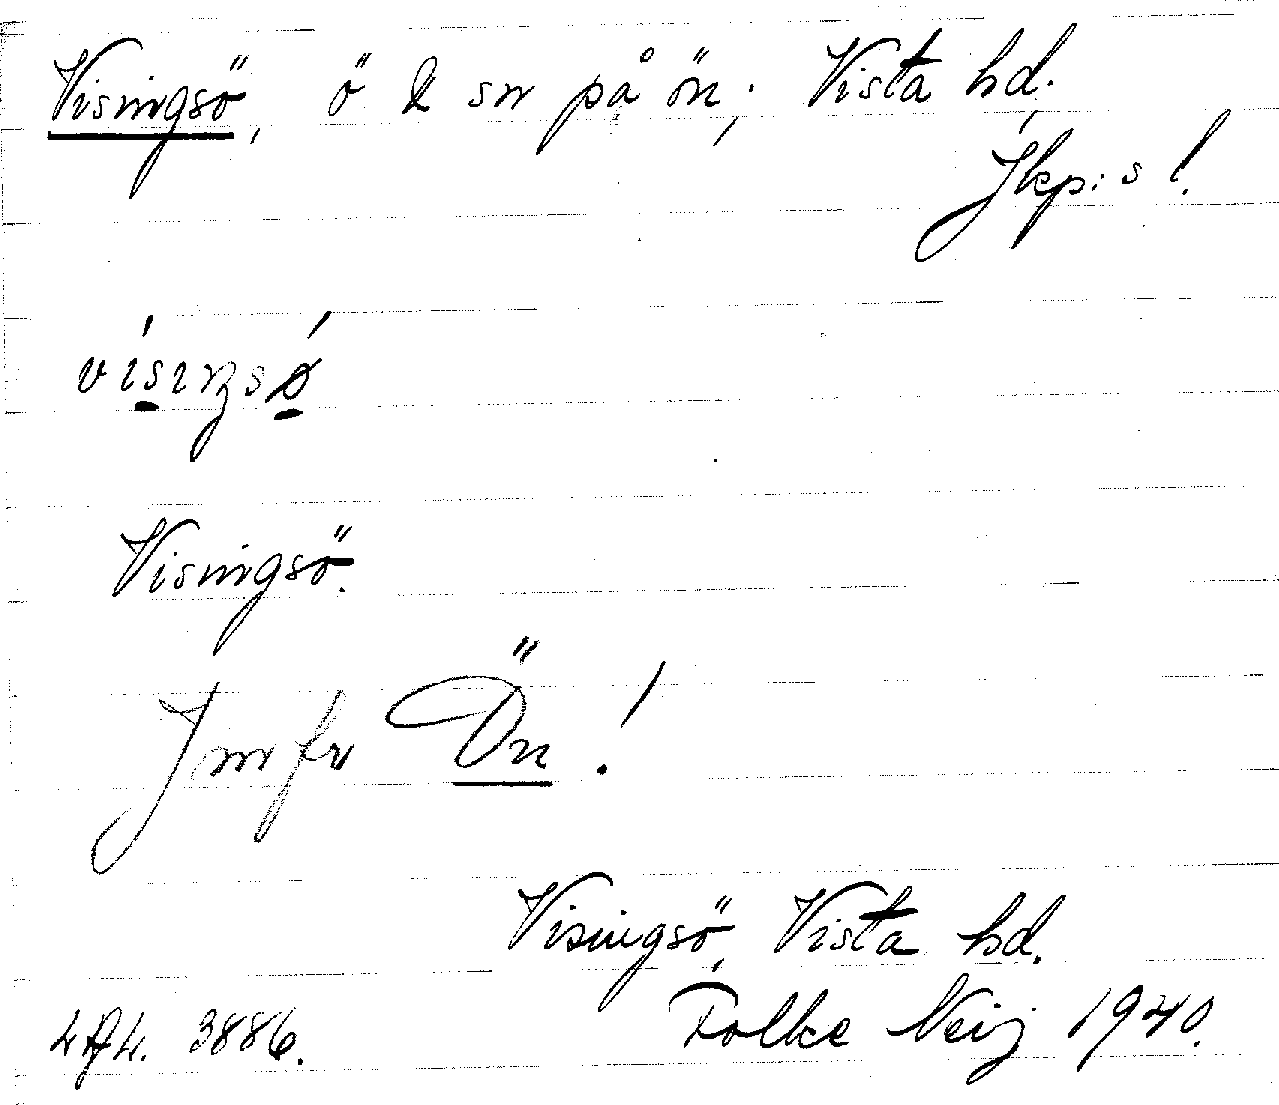 Visingsö, ö & sn på ön; Vista hd.
Jkp:s l.
Visingsö.
Jmfr Ön!
Visingsö, Vista hd.
Folke Neij 1940.
3886.